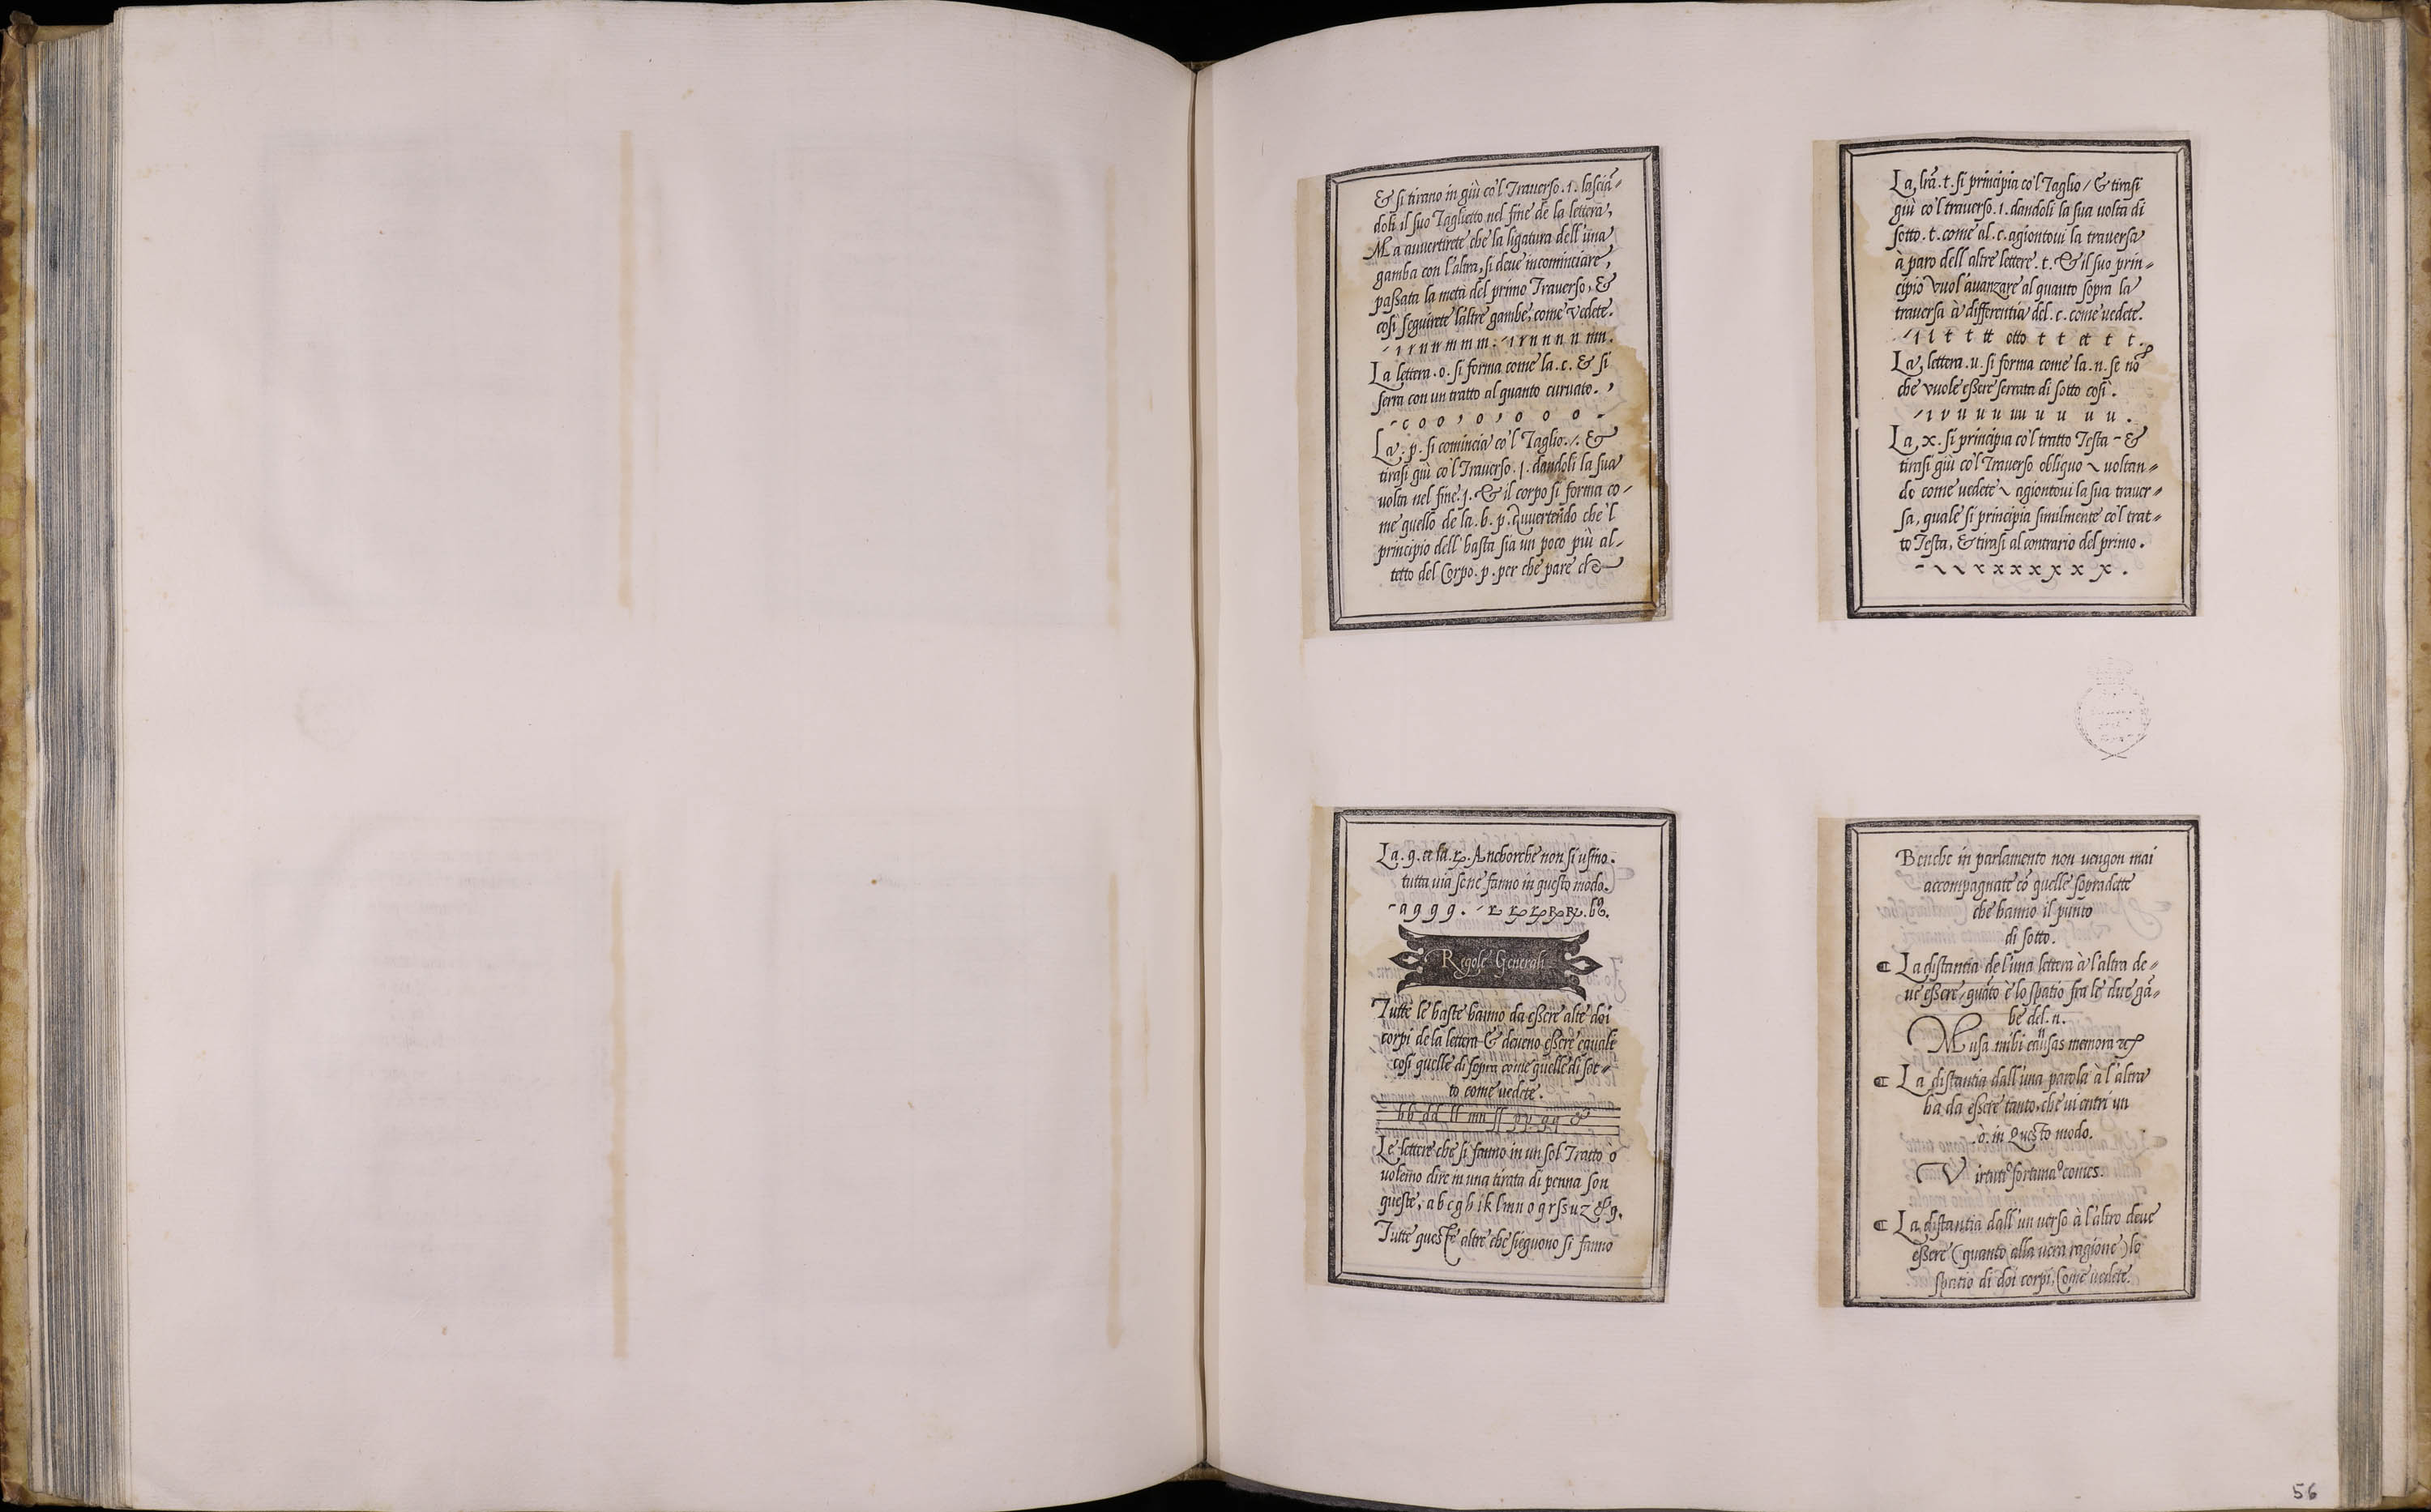 & si tirano in giù co'l Trauerso .ı. lasciā-
doli il suo Taglietto nel fine de la lettera,
Ma auuertirete che la ligatura dell'una
gamba con l'altra, si deue incominciare,
passata la metà del primo Trauerso, &
cosi seguirete l'altre gambe, come vedete.
La lettera .o. si forma come la .c. & si
serra con un tratto al quanto curuato. ,
- c o o , o , o o o -
La .p. si comincia co'l Taglio ./. &
tirasi giù co'l Trauerso .ſ. dandoli la sua
uolta nel fine .ſ. & il corpo si forma co-
me quello de la .b. p. Auuertendo che'l
principio dell'hasta sia un poco più al-
tetto del Corpo .p. per che pare ch
La lrā .t. si principia co'l Taglio / & tirasi
giù co'l trauerso .ı. dandoli la sua uolta di
sotto .t. come al .c. agiontoui la trauersa
à paro dell'altre lettere .t. & il suo prin-
cipio vuol' auanzare al quanto sopra la
trauersa à differentia del .c. come uedete.
-ı l t t tt otto t t et t t.
La lettera .u. si forma come la .n. se nō
che vuole essere serrata di sotto cosi.
-ı v u u u uu u u u u.
La .x. si principia co'l tratto Testa - &
tirasi giù co'l Trauerso obliquo ~ uoltan-
do come uedete ~ agiontoui la sua trauer-
sa, quale si principia similmente co'l trat-
to Testa, & tirasi al contrario del primo.
x x x x x x x x.
La .9. et la .ꝝ. Anchorche non si usino.
tutta uia se ne fanno in questo modo.
Regole Generali
Tutte le haste hanno da essere alte doi
corpi de la lettera & deueno essere equale
cosi quelle di sopra come quelle di sot-
to come uedete.
hb dd ll mn ſſ pp gq &
Le lettere che si fanno in un sol Tratto ò
uolemo dire in una tirata di penna son
queste, a b c g h i k l m n o q r ſ s u z & 9.
Tutte queste altre che sieguono si fanno
Benche in parlamento non uengon mai
accompagnate cō quelle sopradette
che hanno il punto
di sotto.
La distantia de l'una lettera à l'altra de-
ue essere, quāto è lo spatio fra le due gā-
be del .n.
n
Musa mihi causas memora
La distantia dall'una parola à l'altra
ha da essere tanto, che ui entri un
.o. in Questo modo.
Virtuti o fortuna o comes.
La distantia dall'un uerso à l'altro deue
essere (quanto alla uera ragione) lo
spatio di doi corpi, Come uedete.
56